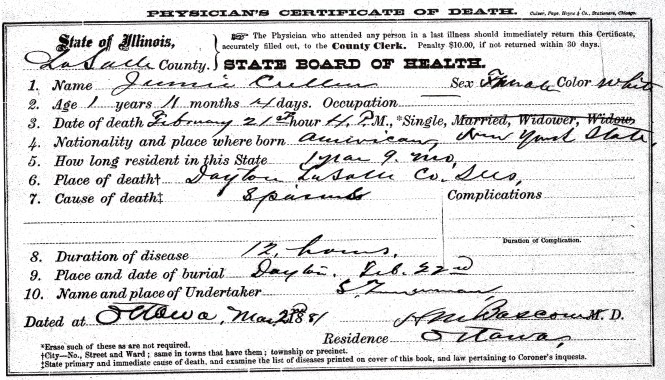 PHYSICIAN'S CERTIFICATE OF DEATH. Culver, Page, Hoyne & Co., Stationers, Chicago.
State of Illinois,
LaSalle County.
☞ The Physician who attended any person in a last illness should immediately return this Certificate,
accurately filled out, to the County Clerk. Penalty $10.00, if not returned within 30 days.
STATE BOARD OF HEALTH.
1. Name Jennie Cullen Sex Female Color White
2. Age 1 years 11 months 4 days. Occupation
3. Date of death February 21st hour 4 P.M., *Single, Married, Widower, Widow
4. Nationality and place where born American, New York State,
5. How long resident in this State 1 year 9 mo,
6. Place of death† Dayton LaSalle Co. Ills,
7. Cause of death‡ Spasms Complications
Duration of Complication.
8. Duration of disease 12 hours.
9. Place and date of burial Dayton, Feb. 22nd
10. Name and place of Undertaker S. Zimmerman,
Dated at Ottawa, Mar 2nd 1881 H M Bascom M. D.
Residence Ottawa,
*Erase such of these as are not required.
†City—No., Street and Ward; same in towns that have them; township or precinct.
‡State primary and immediate cause of death, and examine the list of diseases printed on cover of this book, and law pertaining to Coroner's inquests.